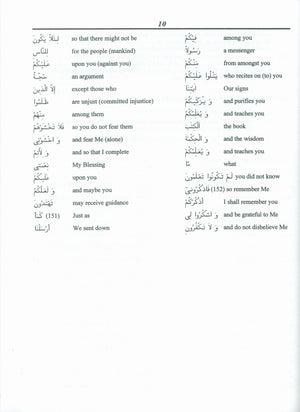 10
لِئَلَّا يَكُونَ so that there might not be
لِلنَّاسِ for the people (mankind)
عَلَيْكُمْ upon you (against you)
حُجَّةٌ an argument
إِلَّا الَّذِينَ except those who
ظَلَمُوا are unjust (committed injustice)
مِنْهُمْ among them
فَلَا تَخْشَوْهُمْ so you do not fear them
وَ اخْشَوْنِي and fear Me (alone)
وَ لِأُتِمَّ and so that I complete
نِعْمَتِي My Blessing
عَلَيْكُمْ upon you
وَ لَعَلَّكُمْ and maybe you
تَهْتَدُونَ may receive guidance
كَمَا (151) Just as
أَرْسَلْنَا We sent down
فِيكُمْ among you
رَسُولًا a messenger
مِنْكُمْ from amongst you
يَتْلُوا عَلَيْكُمْ who recites on (to) you
آيَتِنَا Our signs
وَ يُزَكِّيكُمْ and purifies you
وَ يُعَلِّمُكُمُ and teaches you
الْكِتَبَ the book
وَ الْحِكْمَةَ and the wisdom
وَ يُعَلِّمُكُمْ and teaches you
مَّا what
لَمْ تَكُونُوا تَعْلَمُونَ you did not know
فَاذْكُرُونِي (152) so remember Me
أَذْكُرْكُمْ I shall remember you
وَ اشْكُرُوا لِي and be grateful to Me
وَ لَا تَكْفُرُونِ and do not disbelieve Me